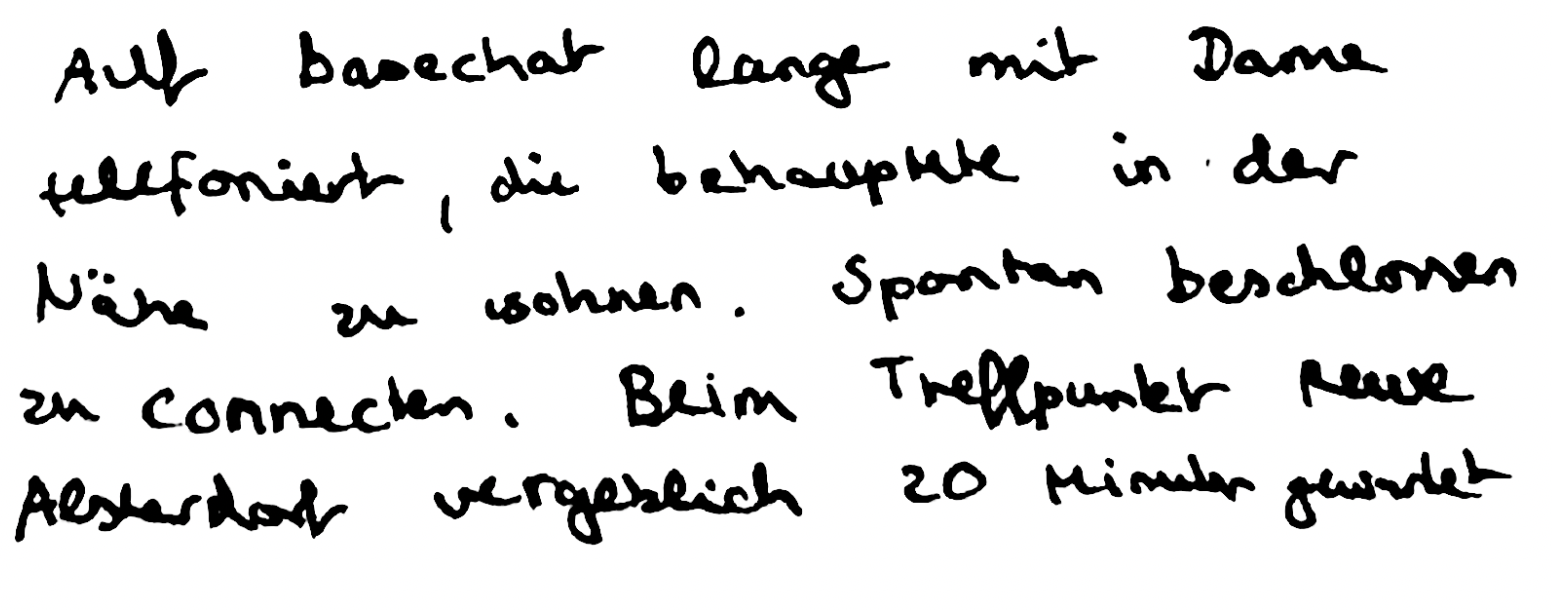 Auf basechat lange mit Dame
telefoniert, die behauptete in der
Nähe zu wohnen. Spontan beschlossen
zu connecten. Beim Treffpunkt Rewe
Alsterdorf vergeblich 20 Minuten gewartet